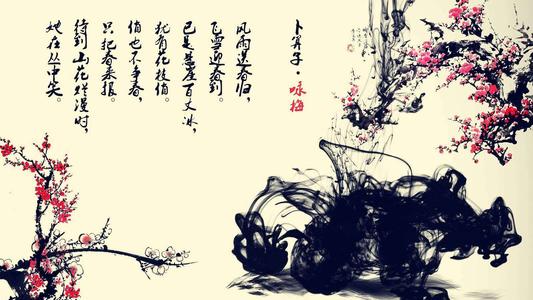 卜算子·咏梅
风雨送春归，
飞雪迎春到。
已是悬崖百丈冰，
犹有花枝俏。
俏也不争春，
只把春来报。
待到山花烂漫时，
她在丛中笑。